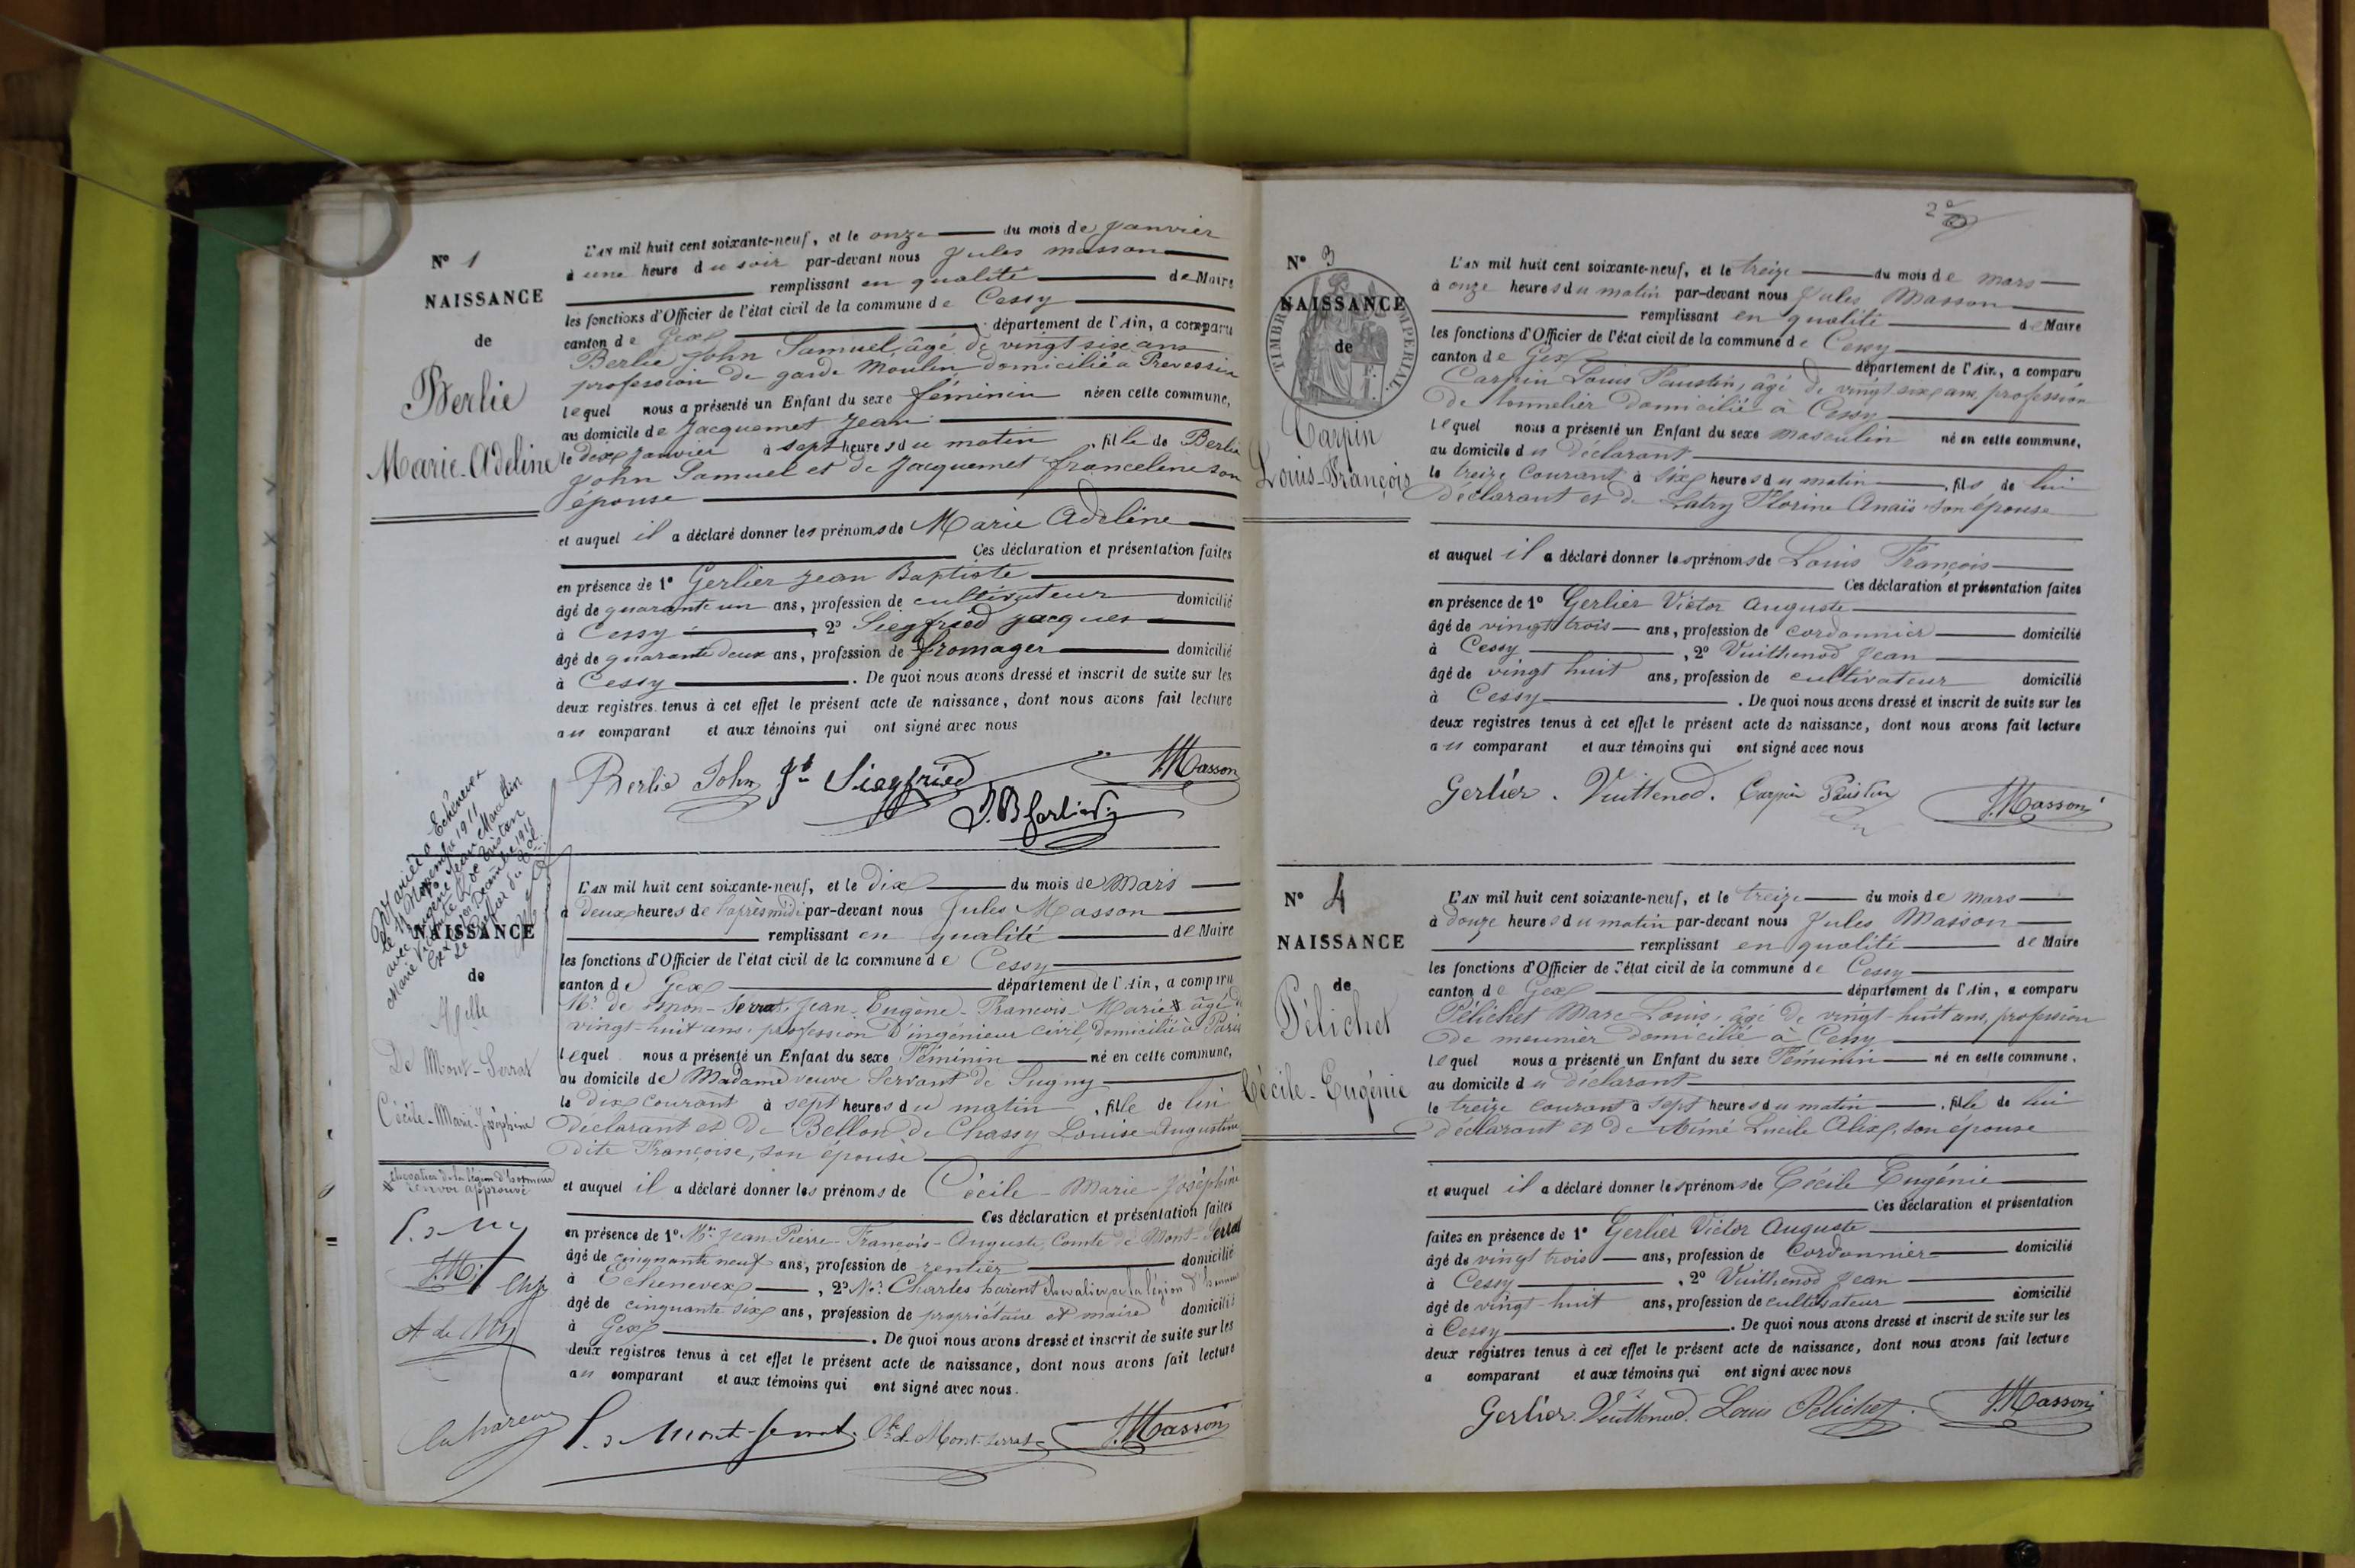 N° 1
NAISSANCE
de
Berlie
Marie-Adeline
L'AN mil huit cent soixante-neuf, et le onze du mois de janvier
à une heure du soir par-devant nous Jules Masson
remplissant en qualité de Maire
les fonctions d'Officier de l'état civil de la commune de Cessy
canton de Gex département de l'Ain, a comparu
Berlie John Samuel, âgé de vingt six ans
profession de garde Moulin domicilié à Prevessin
lequel nous a présenté un Enfant du sexe féminin né en cette commune,
au domicile de Jacquemet Jean
le dix janvier à sept heures du matin, fille de Berlie
John Samuel et de Jacquemet franceline son
épouse
et auquel il a déclaré donner les prénoms de Marie Adeline
Ces déclaration et présentation faites
en présence de 1° Gerlier Jean Baptiste
âgé de quarante un ans, profession de cultivateur domicilié
à Cessy, 2° Siegfried jacques
âgé de quarante deux ans, profession de fromager domicilié
à Cessy. De quoi nous avons dressé et inscrit de suite sur les
deux registres tenus à cet effet le présent acte de naissance, dont nous avons fait lecture
au comparant et aux témoins qui ont signé avec nous
Berlie John Siegfried Masson
J. B Gerlier
Mariée à Echenevex
le Novembre 1911
avec Eugène Jean
Marie Vicomte de Tristan
Décembre 1911
NAISSANCE
de
Melle
De Mont-Serrat
Cécile-Marie-Joséphine
L'AN mil huit cent soixante-neuf, et le Dix du mois de Mars
à deux heures de l'après midi par-devant nous Jules Masson
remplissant en qualité de Maire
les fonctions d'Officier de l'état civil de la commune de Cessy
canton de Gex département de l'Ain, a comparu
Mr de Mon-Serrat, Jean-Eugène-François-Marie âgé de
vingt-huit ans, profession D'ingénieur civil, domicilié à Paris
lequel nous a présenté un Enfant du sexe Féminin né en cette commune,
au domicile de Madame veuve Servant de Sugny
le dix courant à sept heures du matin, fille de lui
déclarant et de Bellon de Chassy Louise-Augustine
dite Françoise, son épouse
chevalier de la légion d'honneur
renvoi approuvé
et auquel il a déclaré donner les prénoms de Cécile-Marie-Joséphine
Ces déclaration et présentation faites
en présence de 1° Mr Jean-Pierre-François-Auguste, Comte de Mont-Serrat
âgé de cinquante neuf ans, profession de rentier domicilié
à Echenevex, 2° Mr Charles harent chevalier de la légion d'honneur
âgé de cinquante six ans, profession de propriétaire et maire domicilié
à Gex. De quoi nous avons dressé et inscrit de suite sur les
deux registres tenus à cet effet le présent acte de naissance, dont nous avons fait lecture
au comparant et aux témoins qui ont signé avec nous.
Mont-Serrat de Mont-Serrat J. Masson
N° 3
NAISSANCE
de
TIMBRE IMPÉRIAL.
Carpin
Louis-François
L'AN mil huit cent soixante-neuf, et le treize du mois de mars
à onze heures du matin par-devant nous Jules Masson
remplissant en qualité de Maire
les fonctions d'Officier de l'état civil de la commune de Cessy
canton de Gex département de l'Ain, a comparu
Carpin Louis Faustin, âgé de vingt six ans, profession
de tonnelier domicilié à Cessy
lequel nous a présenté un Enfant du sexe masculin né en cette commune,
au domicile du déclarant
le treize courant à six heures du matin, fils de lui
déclarant et de Latry Florine Anaïs son épouse
et auquel il a déclaré donner les prénoms de Louis François
Ces déclaration et présentation faites
en présence de 1° Gerlier Victor Auguste
âgé de vingt trois ans, profession de cordonnier domicilié
à Cessy, 2° Vuithenod Jean
âgé de vingt huit ans, profession de cultivateur domicilié
à Cessy. De quoi nous avons dressé et inscrit de suite sur les
deux registres tenus à cet effet le présent acte de naissance, dont nous avons fait lecture
au comparant et aux témoins qui ont signé avec nous
Gerlier. Vuittenod. Carpin Faustin J. Masson
N° 4
NAISSANCE
de
Pélichet
Cécile-Eugénie
L'AN mil huit cent soixante-neuf, et le treize du mois de mars
à douze heures du matin par-devant nous Jules Masson
remplissant en qualité de Maire
les fonctions d'Officier de l'état civil de la commune de Cessy
canton de Gex département de l'Ain, a comparu
Pélichet Marc Louis, âgé de vingt-huit ans, profession
de meunier domicilié à Cessy
lequel nous a présenté un Enfant du sexe Féminin né en cette commune,
au domicile du déclarant
le treize courant à sept heures du matin, fille de lui
déclarant et de Aimé Lucile Alix, son épouse
et auquel il a déclaré donner les prénoms de Cécile Eugénie
Ces déclaration et présentation
faites en présence de 1° Gerlier Victor Auguste
âgé de vingt trois ans, profession de cordonnier domicilié
à Cessy, 2° Vuithenod Jean
âgé de vingt-huit ans, profession de cultivateur domicilié
à Cessy. De quoi nous avons dressé et inscrit de suite sur les
deux registres tenus à cet effet le présent acte de naissance, dont nous avons fait lecture
a comparant et aux témoins qui ont signé avec nous
Gerlier. Vuittenod. Louis Pelichet. J. Masson